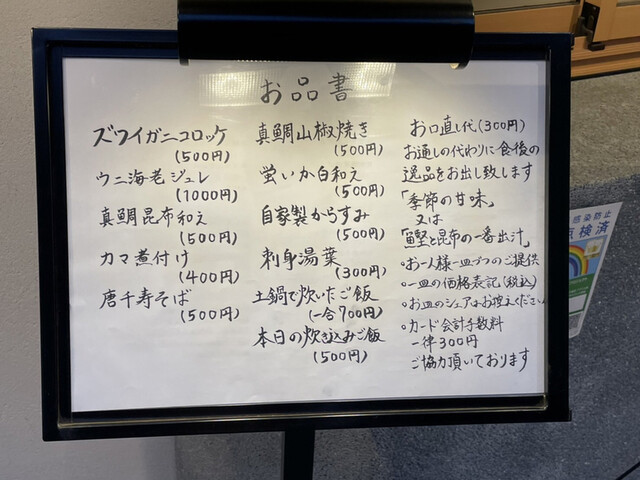 お品書
ズワイガニコロッケ
(500円)
ウニ海老ジュレ
(1000円)
真鯛昆布和え
(500円)
カマ煮付け
(400円)
唐千寿そば
(500円)
真鯛山椒焼き
(500円)
蛍いか白和え
(500円)
自家製からすみ
(500円)
刺身湯葉
(300円)
土鍋で炊いたご飯
(一合700円)
本日の炊き込みご飯
(500円)
お口直し代(300円)
お通しの代わりに食後の
逸品をお出し致します
「季節の甘味」
又は
「鰹と昆布の一番出汁」
・お一人様一皿づつのご提供
・一皿の価格表記(税込)
・お皿のシェアはお控えください
・カード会計手数料
一律300円
ご協力頂いております
感染防止
点検済